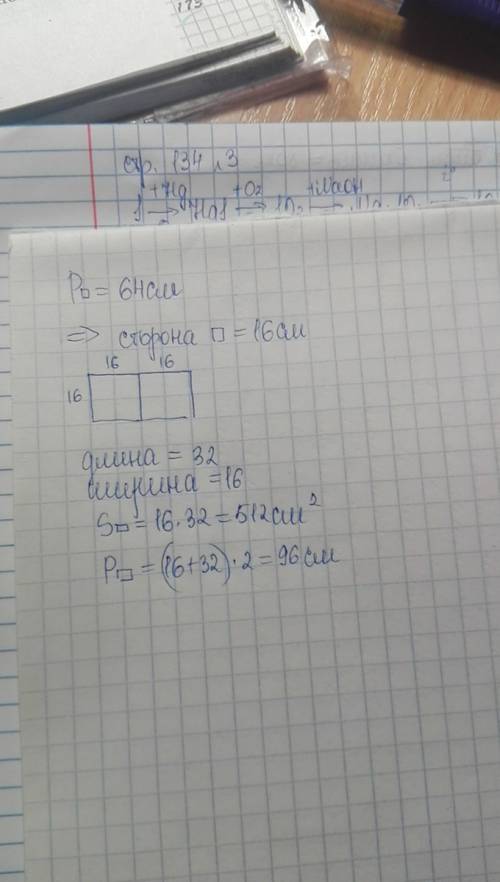 173
стр. 134 л3
+Hg +O₂ +NaOH
P□ = 64см
=> сторона □ = 16см
16 16
16
длина = 32
ширина = 16
S▭ = 16·32 = 512см²
P▭ = (16+32)·2 = 96см